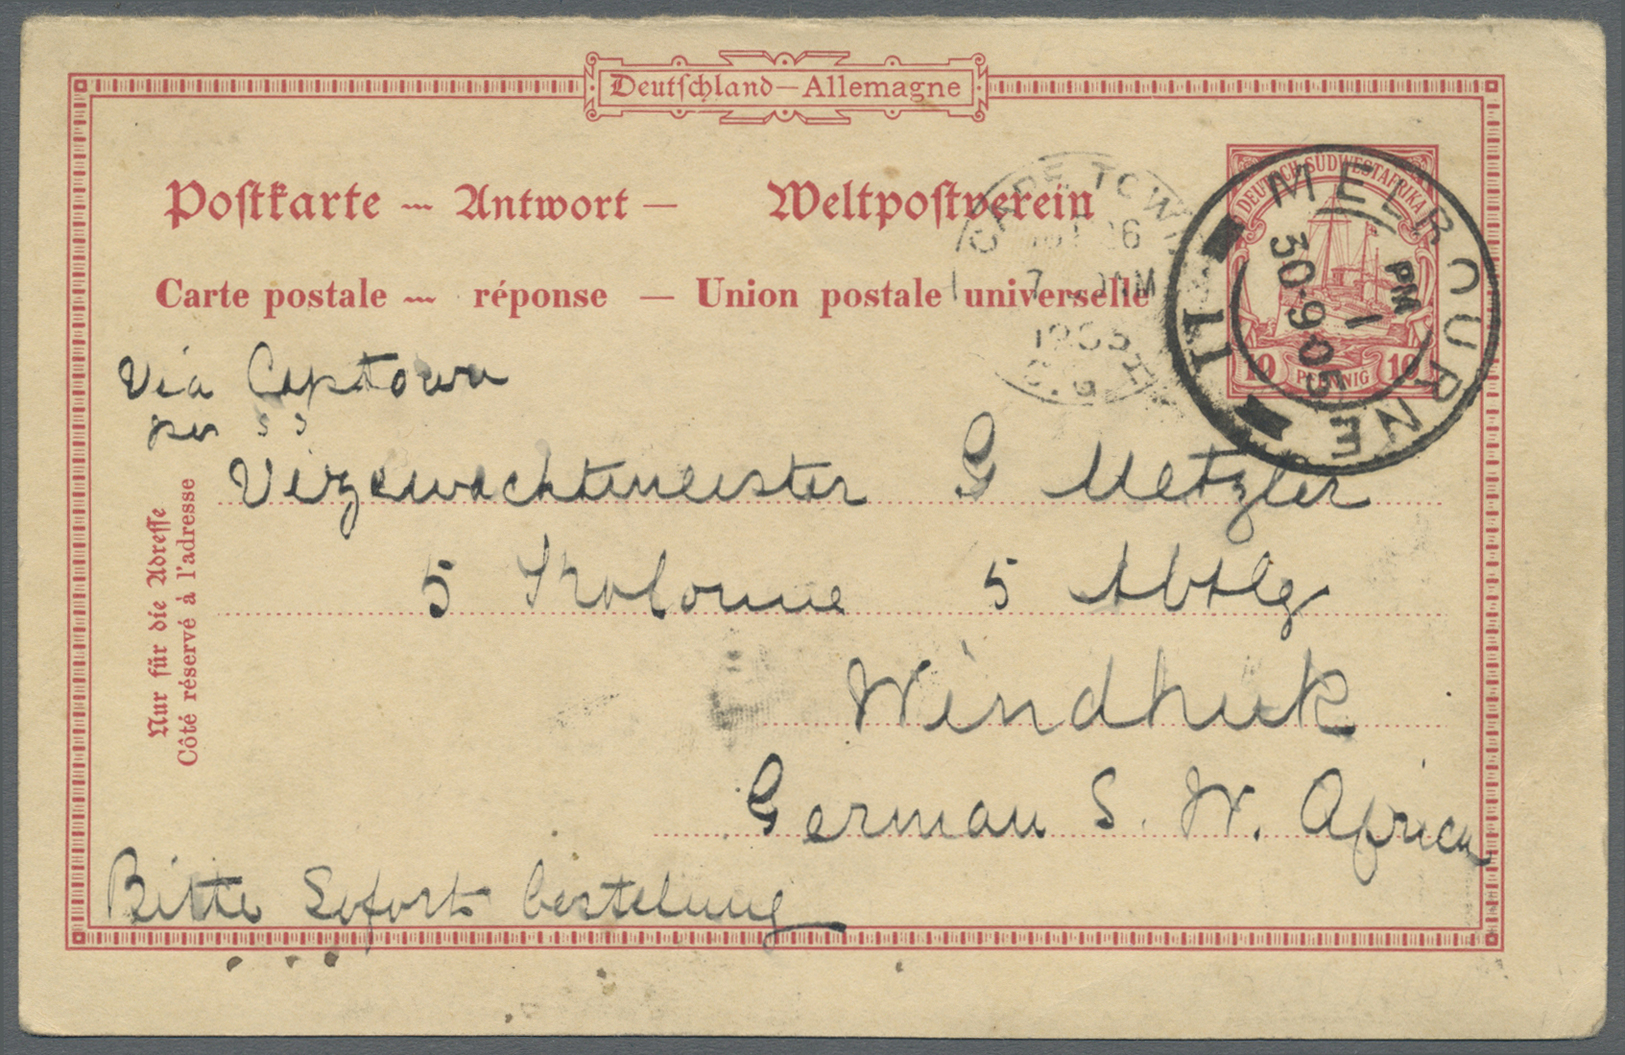 Deutschland—Allemagne
Postkarte — Antwort — Weltpostverein
Carte postale — réponse — Union postale universelle
DEUTSCH-SÜDWESTAFRIKA
10 PFENNIG 10
MELBOURNE
PM
1
30·9 05
11
CAPE TOWN
26
7 AM
1905
C.G.H
Via Captown
per SS
Vizewachtmeister G Metzler
5 Kolonne 5 Abtlg
Windhuk
German S. W. Africa
Bitte Sofort bestelung
Nur für die Adresse
Côté réservé à l'adresse